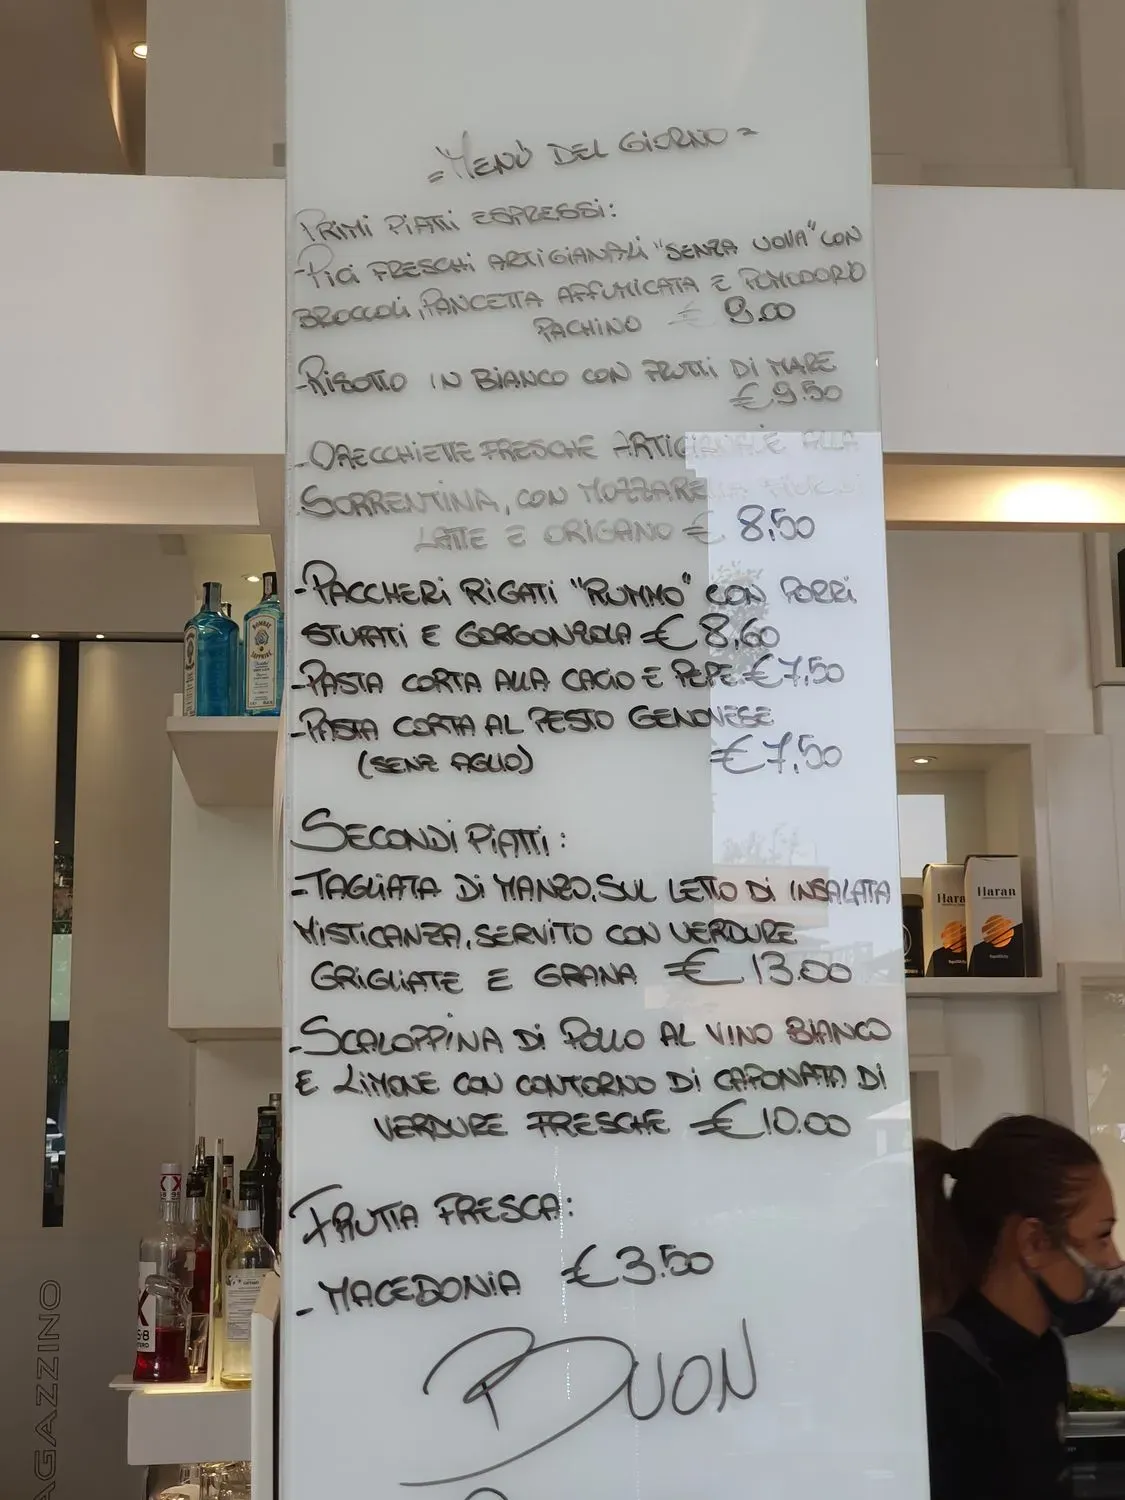 = MENÙ DEL GIORNO =
PRIMI PIATTI ESPRESSI:
- PICI FRESCHI ARTIGIANALI "SENZA UOVA" CON
BROCCOLI, PANCETTA AFFUMICATA E POMODORO
PACHINO € 9.00
- RISOTTO IN BIANCO CON FRUTTI DI MARE
€ 9.50
- ORECCHIETTE FRESCHE ARTIGIANALE ALLA
SORRENTINA, CON MOZZARELLA FIOR DI
LATTE E ORIGANO € 8,50
- PACCHERI RIGATI "RUMMO" CON PORRI
STUFATI E GORGONZOLA € 8,60
- PASTA CORTA ALLA CACIO E PEPE € 7,50
- PASTA CORTA AL PESTO GENOVESE
(SENZ AGLIO) € 7,50
SECONDI PIATTI:
- TAGLIATA DI MANZO, SUL LETTO DI INSALATA
MISTICANZA, SERVITO CON VERDURE
GRIGLIATE E GRANA € 13.00
- SCALOPPINA DI POLLO AL VINO BIANCO
E LIMONE CON CONTORNO DI CAPONATA DI
VERDURE FRESCHE € 10.00
FRUTTA FRESCA:
- MACEDONIA € 3.50
BUON
BOMBAY
SAPPHIRE
Haran
Haran
AGAZZINO